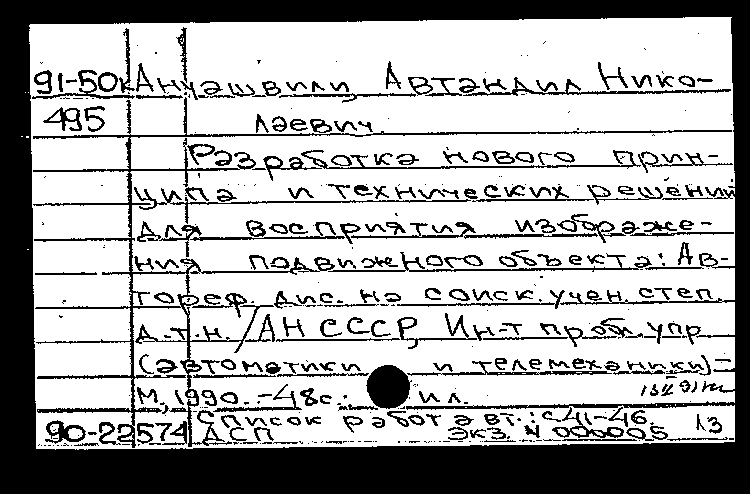 91-50к Ануашвили, Автандил Нико-
495 лаевич.
Разработка нового прин-
ципа и технических решений
для восприятия изображе-
ния подвижного объекта: Ав-
тореф. дис. на соиск. учен. степ.
д.т.н. / АН СССР, Ин-т пробл. упр.
(автоматики и телемеханики).-
М., 1990. -48с.: ил.
Список работ авт.: с.41-46.
90-22574 ДСП Экз. N 000005 13